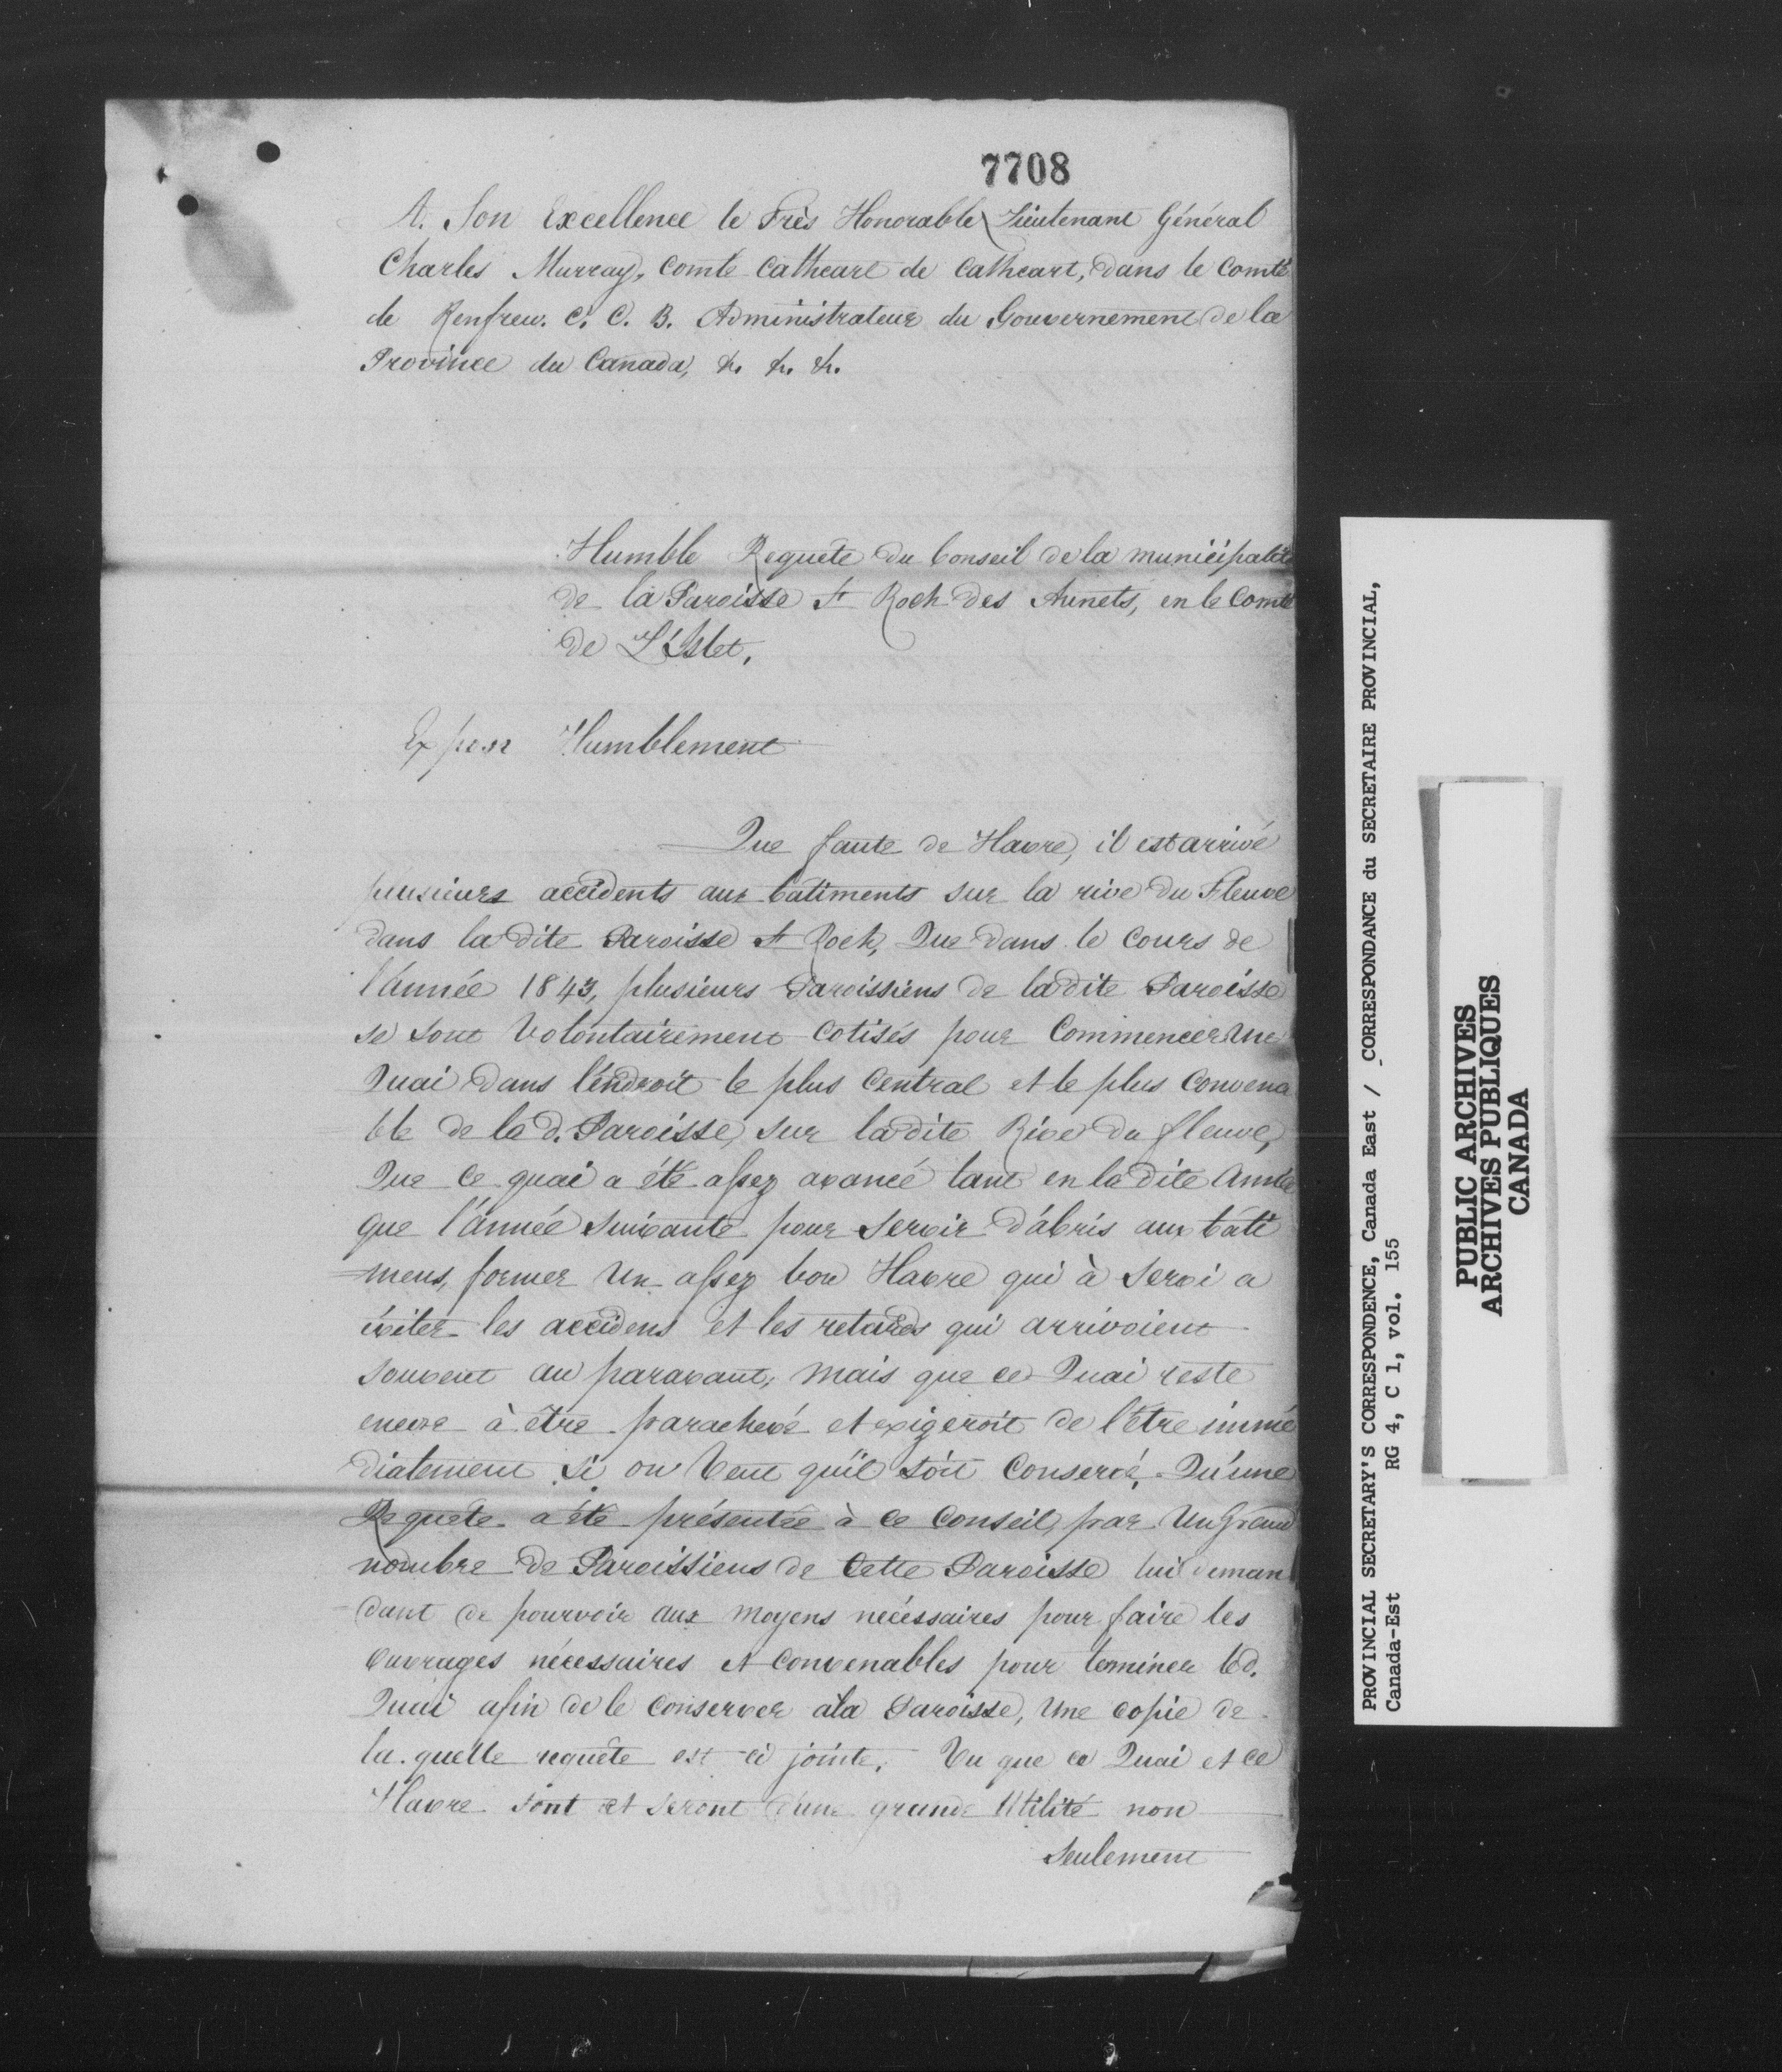 7708
A. Son Excellence le Très Honorable Lieutenant Général
Charles Murray, Comte Cathcart de Cathcart, dans le Comté
de Renfrew. C. C. B. Administrateur du Gouvernement de la
Province du Canada, &. &. &.
Humble Requête du Conseil de la municipalité
de la Paroisse St Roch des Aunets, en le Comté
de L'Islet.
Expose Humblement
Que faute de Havre, il est arrivé
plusieurs accidents aux batiments sur la rive du Fleuve
dans la dite Paroisse St Roch, Que dans le cours de
l'année 1843, plusieurs Paroissiens de la dite Paroisse
se sont Volontairement cotisés pour Commencer Un
Quai dans l'endroit le plus Central et le plus Convena
ble de la d. Paroisse, sur la dite Rive du fleuve,
Que ce quai a été assez avancé tant en la dite Année
que l'année suivante pour servir d'abris aux bâti
-mens, former Un assez bon Havre qui à servi a
éviter les accidens et les retards qui arrivoient
souvent au paravant, mais que ce Quai reste
encore à être parachevé et exigeroit de l'être immé
diatement si on Veut qu'il soit Conservé. Qu'une
Requête a été présentée à ce Conseil, par Un Grand
nombre de Paroissiens de Cette Paroisse lui deman
-dant de pourvoir aux moyens nécessaires pour faire les
Ouvrages nécessaires et Convenables pour terminer led.
Quai afin de le Conserver à la Paroisse, Une copie de
la quelle requête est ci jointe. Vu que ce Quai et ce
Havre sont et seront d'une grande Utilité non
Seulement
PROVINCIAL SECRETARY'S CORRESPONDENCE, Canada East / CORRESPONDANCE du SECRETAIRE PROVINCIAL,
Canada-Est RG 4, C 1, vol. 155
PUBLIC ARCHIVES
ARCHIVES PUBLIQUES
CANADA